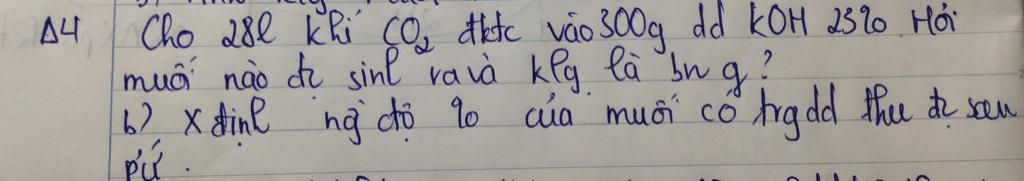 Δ4 Cho 28l khí CO₂ đktc vào 300g dd KOH 23% Hỏi
muối nào đc sinh ra và klg là bn g?
b) Xđịnh ng độ % của muối có trg dd thu đc sau
pứ.